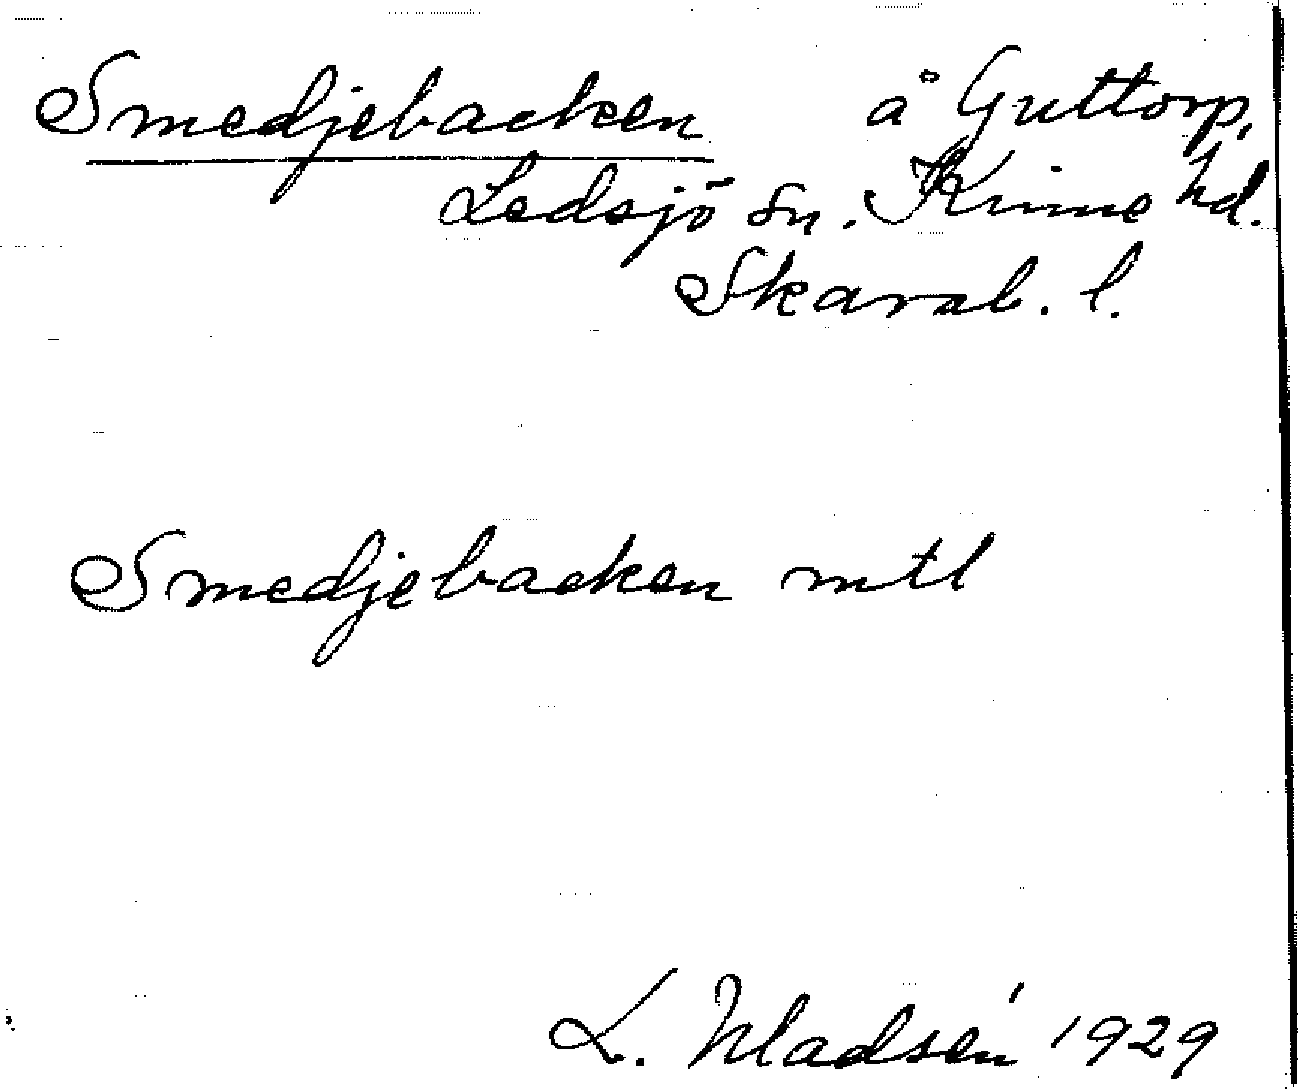 Smedjebacken å Guttorp,
Ledsjö sn. Kinne hd.
Skarab. l.
Smedjebacken mtl
L. Wadsén 1929